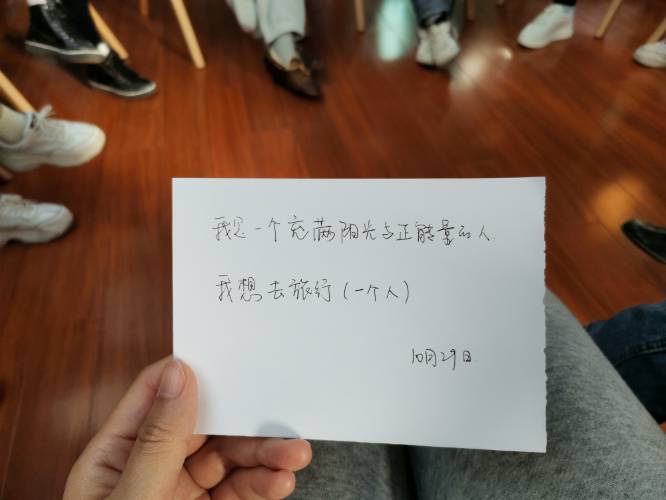 我是一个充满阳光与正能量的人.
我想去旅行(一个人)
10月29日